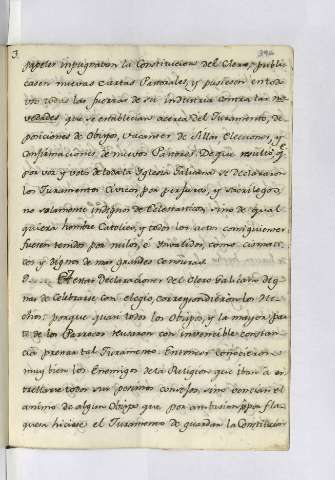 3. 396
papeles inpugnaron la Constitucion del Clero, publi
casen nuevas Cartas Pastorales, y pusiesen en todo
uso todas las fuerzas de su industria contra las no
vedades que se establecian acerca del Juramento, de
posiciones de Obispos, vacantes de Sillas, Elecciones, y
Confirmaciones de nuevos Pastores. De que resultó, q.e
por voz y voto de toda la Yglesia Galicana se declararon
los Juramentos Civicos por perjuros, y sacrilegos
no solamente indignos de Eclesiasticos, sino de qual
quiera hombre Catolico, y todos los actos consiguientes
fuesen tenidos por nulos, é invalidos, como cismati
cos y dignos de mas grandes censuras.
Estas Declaraciones del Clero Galicano dig
nas de Celebrarse con elogio, correspondieron los He
chos; porque quasi todos los Obispos, y la mayor par
te de los Parrocos reusaron con invencible constan
cia prestar tal Juramento. Entonces conocieron
muy bien los Enemigos de la Religion que iban a es
trellarse todos sus pesimos consejos, sino vencian el
animo de algun Obispo que por ambicion, ó por fla
queza hiciese el Juramento de guardar la Constitucion